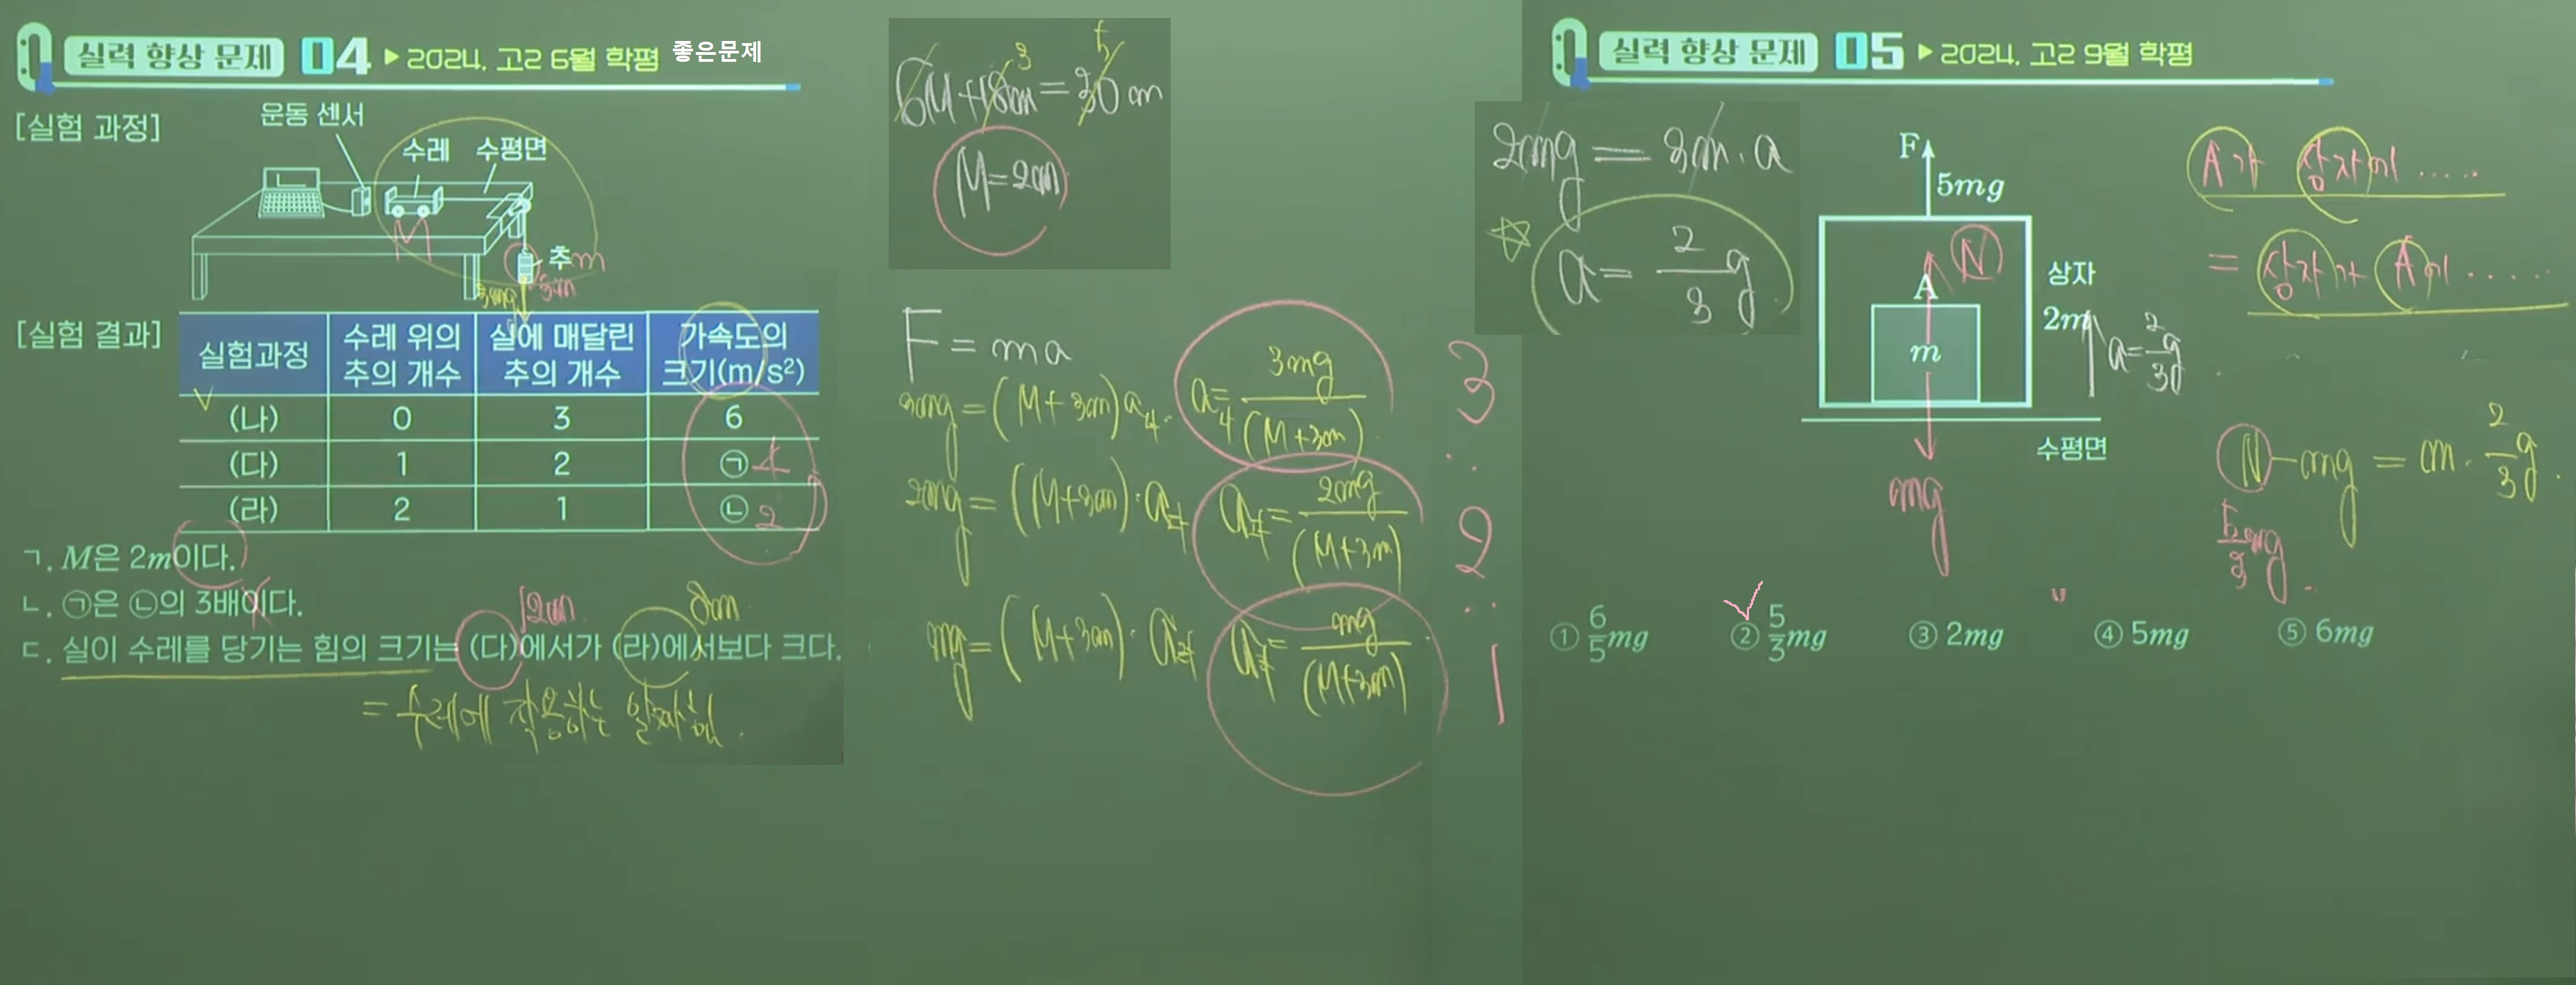 실력 향상 문제 04 ▶ 2024. 고2 6월 학평 좋은문제
[실험 과정]
운동 센서
수레 수평면
M
추 m
3m
3mg
[실험 결과]
실험과정 수레 위의 추의 개수 실에 매달린 추의 개수 가속도의 크기(m/s²)
(나) 0 3 6
(다) 1 2 ㉠ 4
(라) 2 1 ㉡ 2
ㄱ. M은 2m이다.
ㄴ. ㉠은 ㉡의 3배이다.
12m 8m
ㄷ. 실이 수레를 당기는 힘의 크기는 (다)에서가 (라)에서보다 크다.
= 수레에 작용하는 알짜힘.
6M+18m=30m
3 5
M=2m
F=ma
3mg=(M+3m)a나. a나=3mg/(M+3m) 3
:
2mg=(M+3m)·a다 a다=2mg/(M+3m) 2
:
mg=(M+3m)·a라 a라=mg/(M+3m) 1
실력 향상 문제 05 ▶ 2024. 고2 9월 학평
2mg=3m·a
☆ a=2/3 g
F
5mg
N
A
m
상자
2m
a=2/3 g
수평면
mg
A가 상자에 .....
= 상자가 A에 .....
N-mg=m·2/3 g.
5/3 mg.
① 6/5 mg ② 5/3 mg ③ 2mg ④ 5mg ⑤ 6mg